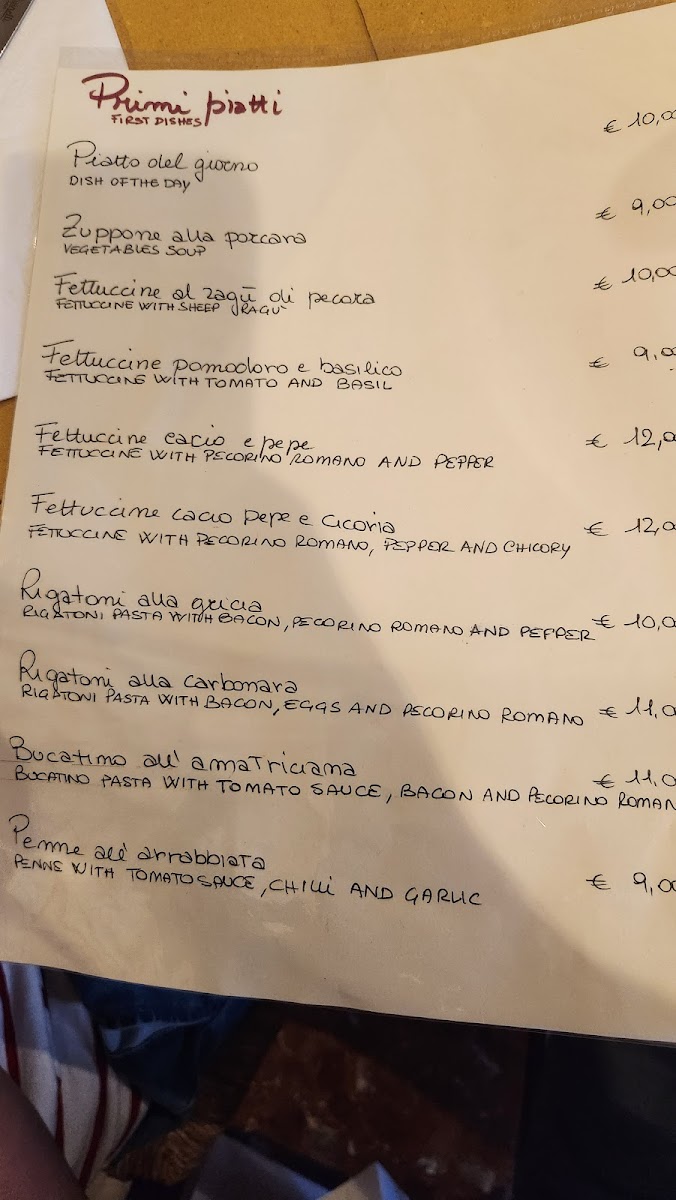 Primi piatti
FIRST DISHES
€ 10,00
Piatto del giorno
DISH OF THE DAY
€ 9,00
Zuppone alla porcara
VEGETABLES SOUP
€ 10,00
Fettuccine al ragù di pecora
FETTUCCINE WITH SHEEP RAGU'
€ 9,00
Fettuccine pomodoro e basilico
FETTUCCINE WITH TOMATO AND BASIL
€ 12,0
Fettuccine cacio e pepe
FETTUCCINE WITH PECORINO ROMANO AND PEPPER
€ 12,0
Fettuccine cacio pepe e cicoria
FETTUCCINE WITH PECORINO ROMANO, PEPPER AND CHICORY
€ 10,0
Rigatoni alla gricia
RIGATONI PASTA WITH BACON, PECORINO ROMANO AND PEPPER
Rigatoni alla carbonara
RIGATONI PASTA WITH BACON, EGGS AND PECORINO ROMANO € 11,0
Bucatino all' amatriciana
€ 11,0
BUCATINO PASTA WITH TOMATO SAUCE, BACON AND PECORINO ROMAN
Penne all' arrabbiata
PENNE WITH TOMATO SAUCE, CHILLI AND GARLIC
€ 9,0